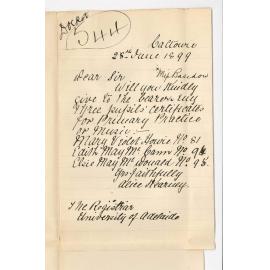 Docket
544
28th June 1899
Dear Sir
Will you kindly
give to the bearer my
three pupils' certificates
for Primary Practice
of Music :—
Mary Violet No 81
Edith May Mc Cann No 96
Elsie May Mc Donald No 98.
Yrs faithfully
Alice Kearney.
The Registrar
University of Adelaide